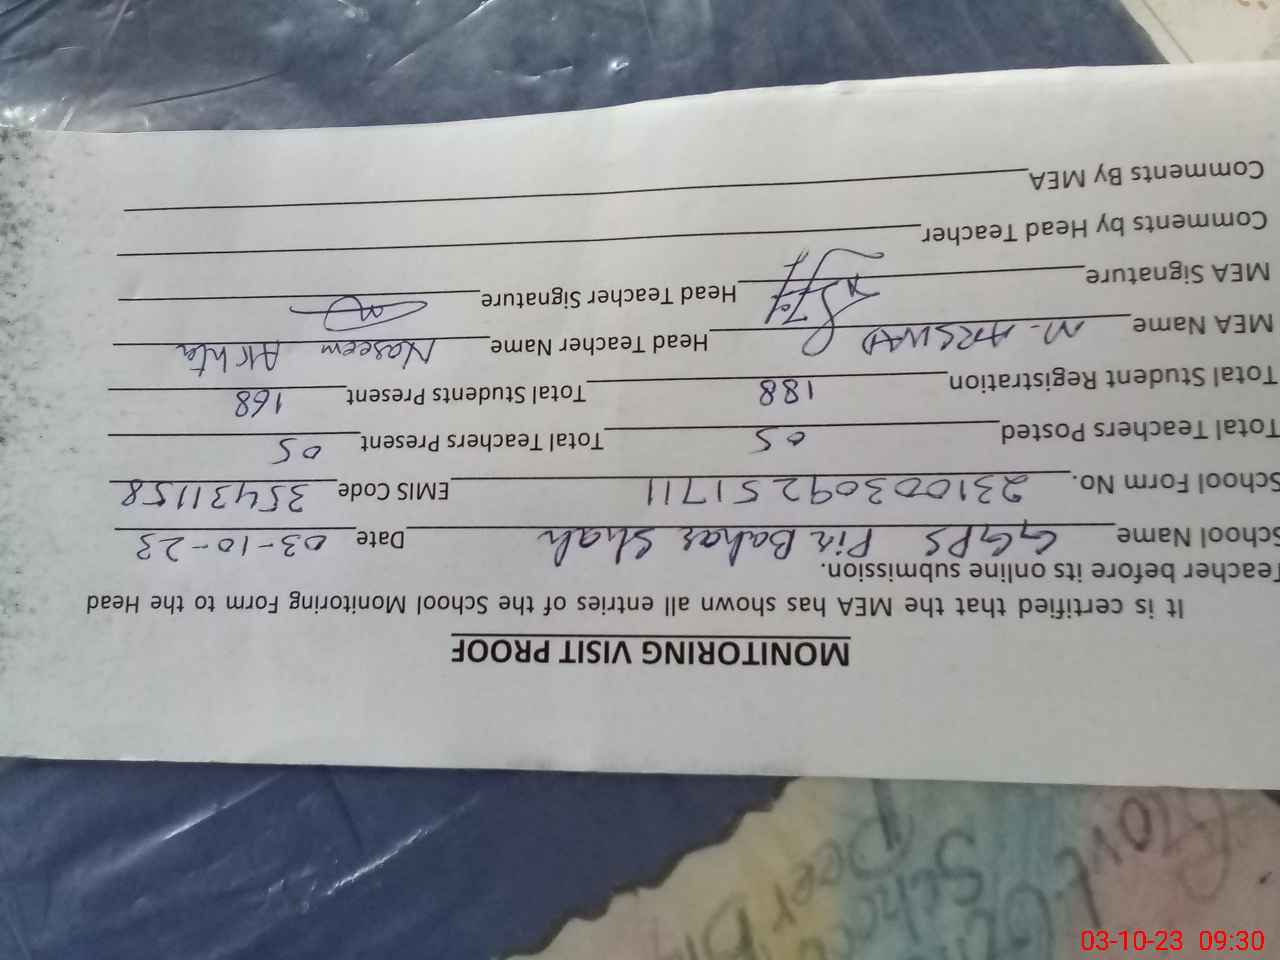 MONITORING VISIT PROOF
It is certified that the MEA has shown all entries of the School Monitoring Form to the Head
Teacher before its online submission.
School Name GGPS Pir Bahar Shah Date 03-10-23
School Form No. 23100309251711 EMIS Code 35431158
Total Teachers Posted 05 Total Teachers Present 05
Total Student Registration 188 Total Students Present 168
MEA Name M. ARSHAD Head Teacher Name Naseem Akhtar
MEA Signature Head Teacher Signature
Comments by Head Teacher
Comments By MEA
Govt. G
School
Peer B
03-10-23 09:30